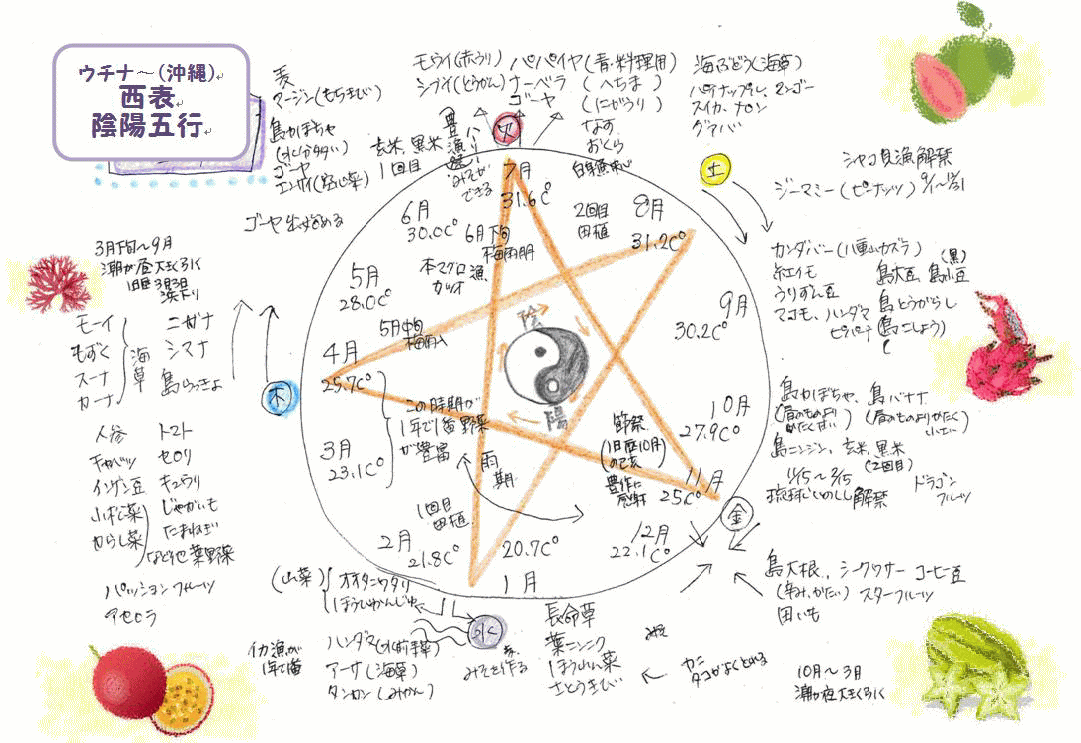 ウチナ～(沖縄)
西表
陰陽五行
麦
マージン(もちきび)
島かぼちゃ
(水分多い)
ゴーヤ
エンサイ(空心菜)
ゴーヤ出始める
玄米、黒米
1回目
豊漁
できる
モウイ(赤うり)
シブイ(とうがん)
パパイヤ(青・料理用)
ナーベラ(へちま)
ゴーヤ(にがうり)
なす
おくら
海ぶどう(海草)
パイナップル、マンゴー
スイカ、メロン
グアバ
火
土
シャコ貝漁解禁
ジーマミー(ピーナッツ)
カンダバー(八重山カズラ)
紅イモ
島大豆、島小豆
(黒)
うりずん豆
島とうがらし
マコモ、ハンダマ
ピパーチ
(島こしょう)
島かぼちゃ、島バナナ
島ニンジン、玄米、黒米
(2回目)
11/15～2/15
琉球いのしし解禁
ドラゴン
フルーツ
金
島大根、シークワサー コーヒー豆
(辛み、かたい) スターフルーツ
田いも
10月～3月
潮が夜大きく引く
カニ
タコがよくとれる
長命草
葉ニンニク
さとうきび
みそを作る
水
(山菜)
オオタニワタリ
ハンダマ(水前寺菜)
アーサ(海草)
タンカン(みかん)
イカ漁が
1年で1番
3月下旬～9月
潮が昼大きく引く
旧暦3月3日
浜下り
モーイ
もずく
スーナ
カーナ
海草
ニガナ
シマナ
島らっきょ
木
人参
キャベツ
インゲン豆
小松菜
からし菜
トマト
セロリ
キュウリ
じゃがいも
たまねぎ
など他葉野菜
パッションフルーツ
アセロラ
7月
31.6C°
8月
31.2C°
2回目
田植
9月
30.2C°
10月
27.9C°
11月
25C°
12月
22.1C°
1月
20.7C°
2月
21.8C°
1回目
田植
3月
23.1C°
4月
25.7C°
5月
28.0C°
5月中旬
梅雨入
6月
30.0C°
6月下旬
梅雨明
本マグロ漁
カツオ
この時期が
1年で1番野菜
が豊富
雨期
節祭
(旧暦10月
の己亥)
豊作に
感謝
陰
陽